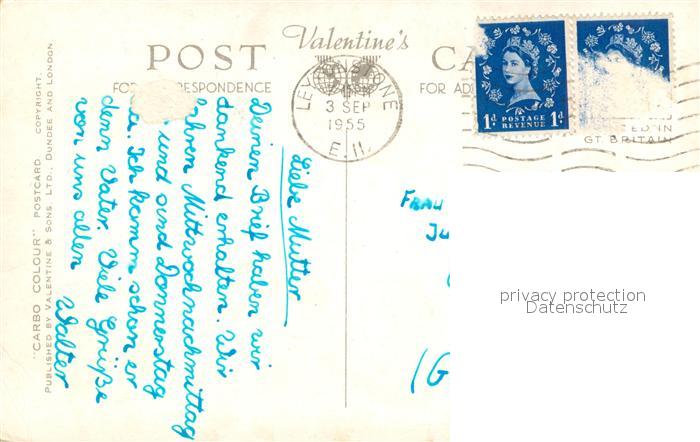 Valentine's
POST CA
FOR RESPONDENCE
FOR AD
LEYTONSTONE
3 SEP
1955
E.11.
1d POSTAGE REVENUE 1d
ED IN
GT. BRITAIN
"CARBO COLOUR" POSTCARD COPYRIGHT.
PUBLISHED BY VALENTINE & SONS, LTD., DUNDEE AND LONDON
Liebe Mutter
Deinen Brief haben wir
dankend erhalten. Wir
fahren Mittwochnachmittag
und sind Donnerstag
da. Ich komm schon er
denn Vater. Viele Grüße
von uns allen
Walter
FRAU
JU
(G
privacy protection
Datenschutz